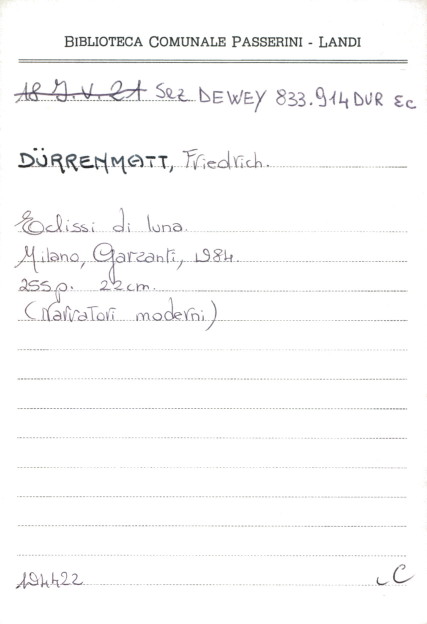 BIBLIOTECA COMUNALE PASSERINI - LANDI
18 J. V. 21 Sez DEWEY 833.914 DUR Ec
DÜRRENMATT, Friedrich.
Eclissi di luna.
Milano, Garzanti, 1984.
255p. 22cm.
(Narratori moderni)
194422 C